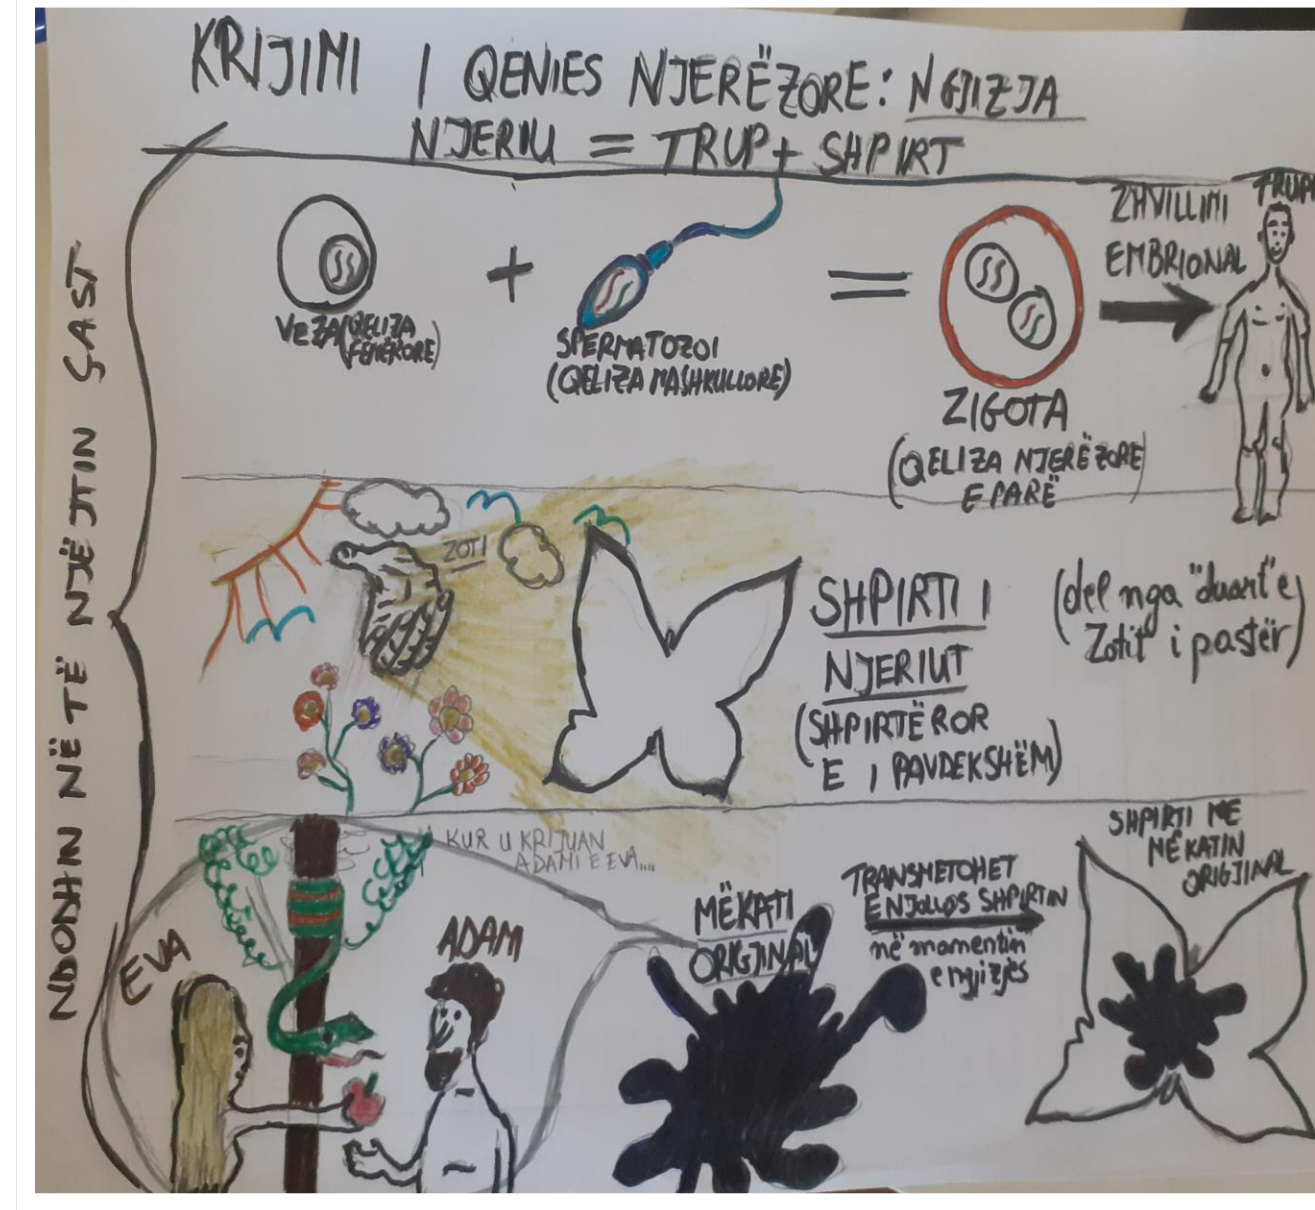 KRIJIMI I QENIES NJERËZORE: NGJIZJA
NJERIU = TRUP + SHPIRT
NDODHIN NË TË NJËJTIN ÇAST
VEZA (QELIZA
FEMËRORE)
+
SPERMATOZOI
(QELIZA MASHKULLORE)
=
ZIGOTA
(QELIZA NJERËZORE
E PARË
ZHVILLIMI
EMBRIONAL
TRUPI
ZOTI
SHPIRTI I
NJERIUT
(SHPIRTËROR
E I PAVDEKSHËM)
(del nga "duart" e
Zotit i pastër)
KUR U KRIJUAN
ADAMI E EVA....
EVA
ADAM
MËKATI
ORIGJINAL
TRANSMETOHET
E NJOLLOS SHPIRTIN
në momentin
e ngjizjes
SHPIRTI ME
MËKATIN
ORIGJINAL